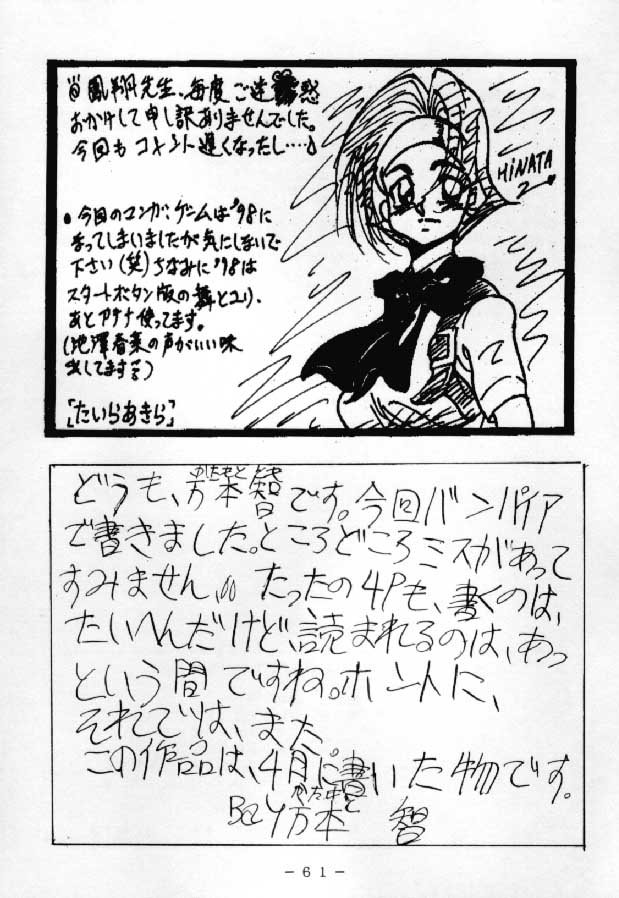 鳳翔先生、毎度ご迷惑
おかけして申し訳ありませんでした。
今回もコメント遅くなったし‥‥
HiNATA
2
●今回のマンガ、ゲームは'98に
なってしまいましたが気にしないで
下さい(笑)ちなみに'98は
スタートボタン版の舞とユリ、
あとアテナ使ってます。
(池澤春菜の声がいい味
出してます)
「たいらあきら」
かたもと とも
どうも、方本智です。今回バンパイア
で書きました。ところどころミスがあって
すみません。たったの4Pも、書くのは、
たいへんだけど、読まれるのは、あっ
という間ですね。ホントに、
それでは、また
この作品は、4月に書いた物です。
かたもと
By 方本 智
-61-